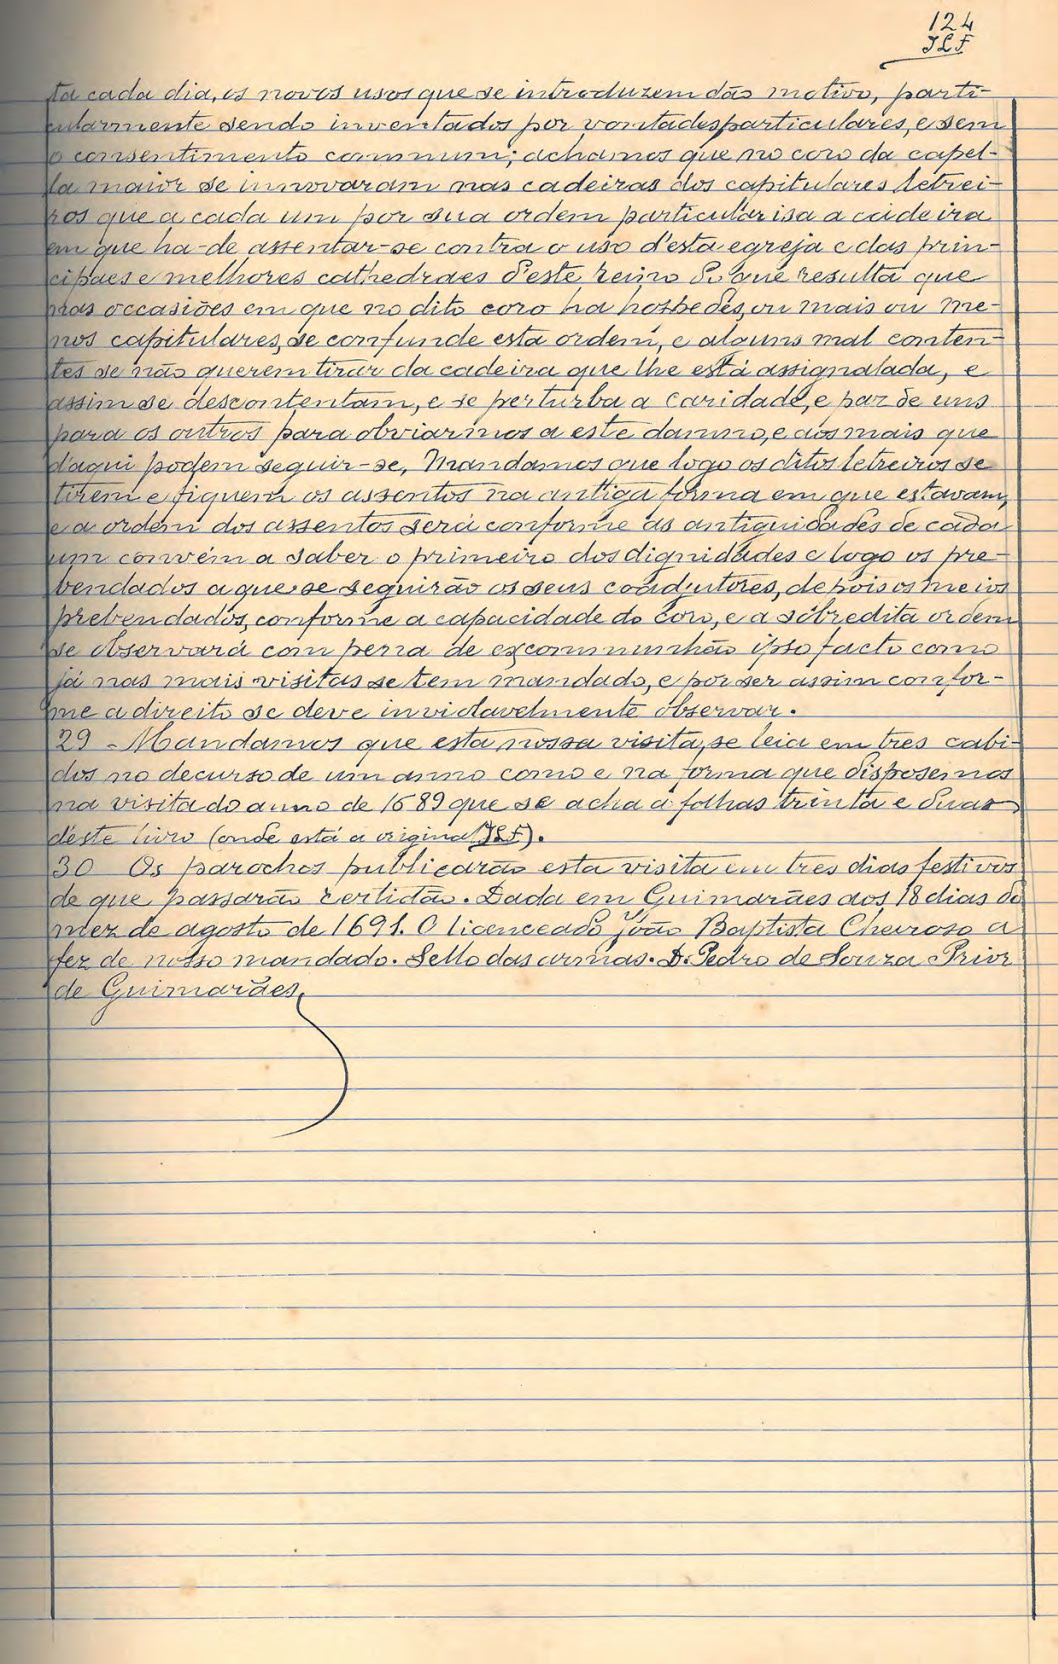 124
JLF
ta cada dia, os novos usos que se introduzem dão motivo, parti-
cularmente sendo inventados por vontades particulares, e sem
o consentimento commum; achamos que no coro da capel-
la maior se innovaram nas cadeiras dos capitulares letrei-
ros que a cada um por sua ordem particularisa a cadeira
em que ha-de assentar-se contra o uso d'esta egreja e das prin-
cipaes e melhores cathedraes d'este reino do que resulta que
nas occasiões em que no dito coro ha hospedes, ou mais ou me-
nos capitulares, se confunde esta ordem, e alguns mal conten-
tes se não querem tirar da cadeira que lhe está assignalada, e
assim se descontentam, e se perturba a caridade, e paz de uns
para os outros para obviarmos a este damno, e aos mais que
d'aqui podem seguir-se, Mandamos que logo os ditos letreiros se
tirem e fiquem os assentos na antiga forma em que estavam,
e a ordem dos assentos será conforme as antiguidades de cada
um convém a saber o primeiro dos dignidades e logo os pre-
bendados a que se seguirão os seus coadjutores, depois os meios
prebendados, conforme a capacidade do coro, e a sobredita ordem
se observará com pena de excommunhão ipso facto como
já nas mais visitas se tem mandado, e por ser assim confor-
me a direito se deve inviolavelmente observar.
29 - Mandamos que esta nossa visita, se leia em tres cabi-
dos no decurso de um anno como e na forma que disposemos
na visita do anno de 1689 que se acha a folhas trinta e duas
d'este livro (onde está a original JLF).
30 Os parochos publicarão esta visita em tres dias festivos
de que passarão certidão. Dada em Guimarães aos 18 dias do
mez de agosto de 1691. O licenceado João Baptista Cheiroso a
fez de nosso mandado. Sello das armas. D. Pedro de Souza Prior
de Guimarães,